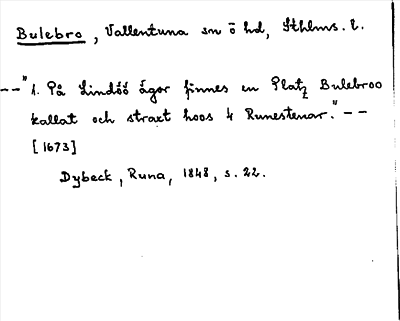 Bulebro, Vallentuna sn ö hd, Sthlms. l.
--"1. På Lindöö ägor finnes en Platz Bulebroo
kallat och straxt hoos 4 Runestenar."--
[1673]
Dybeck, Runa, 1848, s. 22.